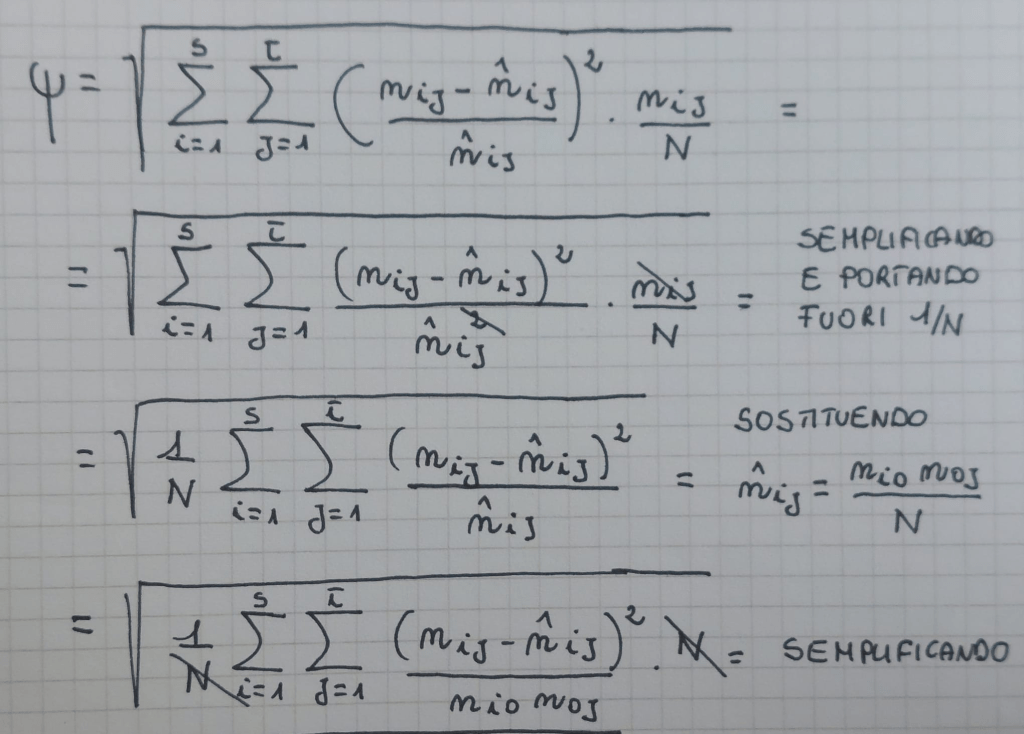 ψ = √( Σ_{i=1}^{s} Σ_{j=1}^{t} ( (n_ij − n̂_ij) / n̂_ij )² · n_ij / N ) =
= √( Σ_{i=1}^{s} Σ_{j=1}^{t} (n_ij − n̂_ij)² / n̂_ij² · n_ij / N ) = SEMPLIFICANDO E PORTANDO FUORI 1/N
= √( 1/N Σ_{i=1}^{s} Σ_{j=1}^{t} (n_ij − n̂_ij)² / n̂_ij ) = SOSTITUENDO n̂_ij = n_io n_oj / N
= √( 1/N Σ_{i=1}^{s} Σ_{j=1}^{t} (n_ij − n̂_ij)² / n_io n_oj · N = SEMPLIFICANDO